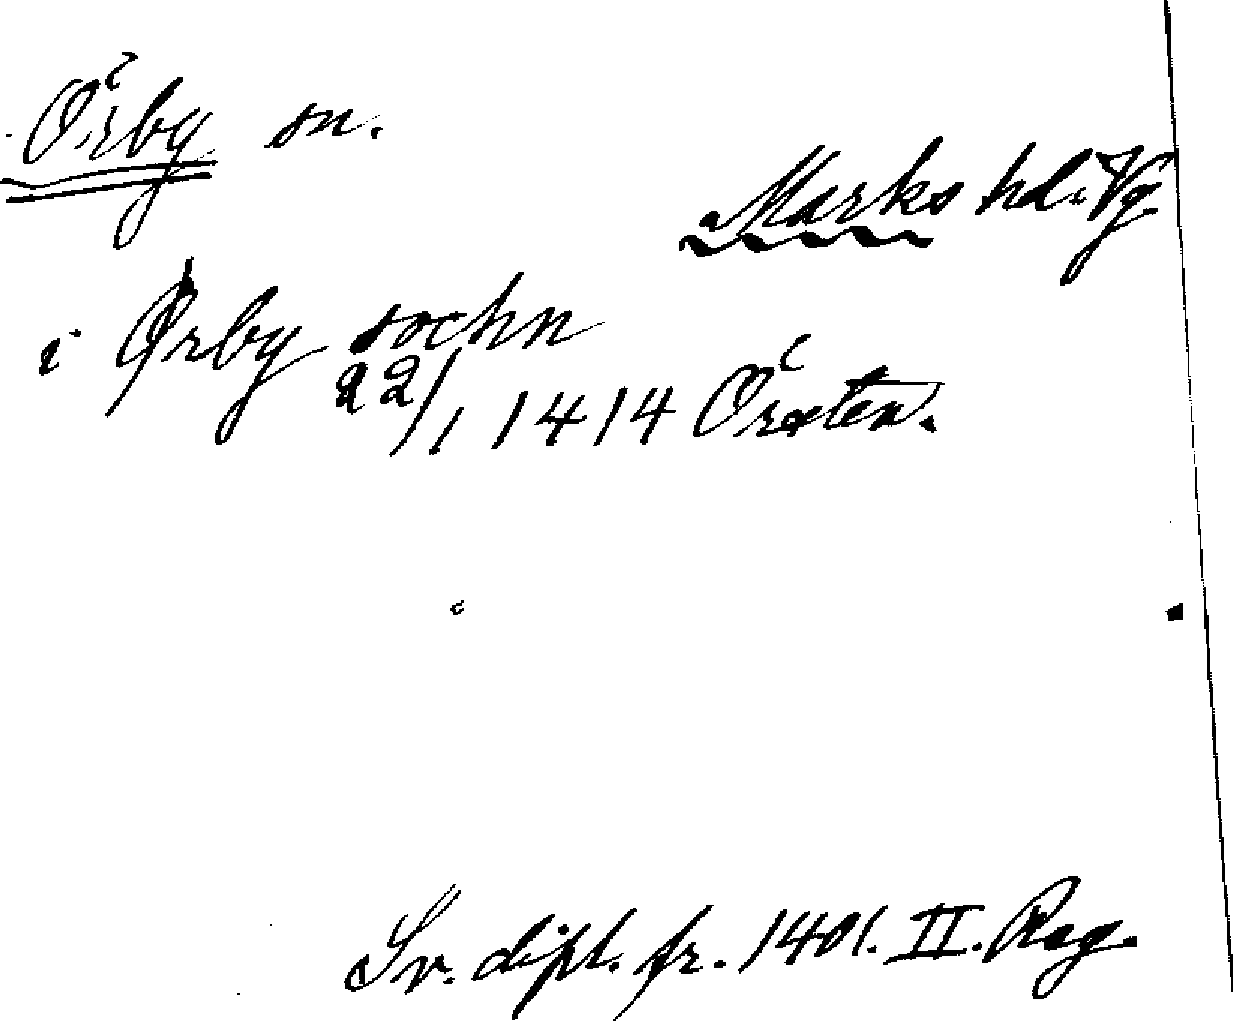 Örby sn.
Marks hd. Vg
i Ørby sochn
22/1 1414 Örsten.
Sv. dipl. fr. 1401. II. Reg.